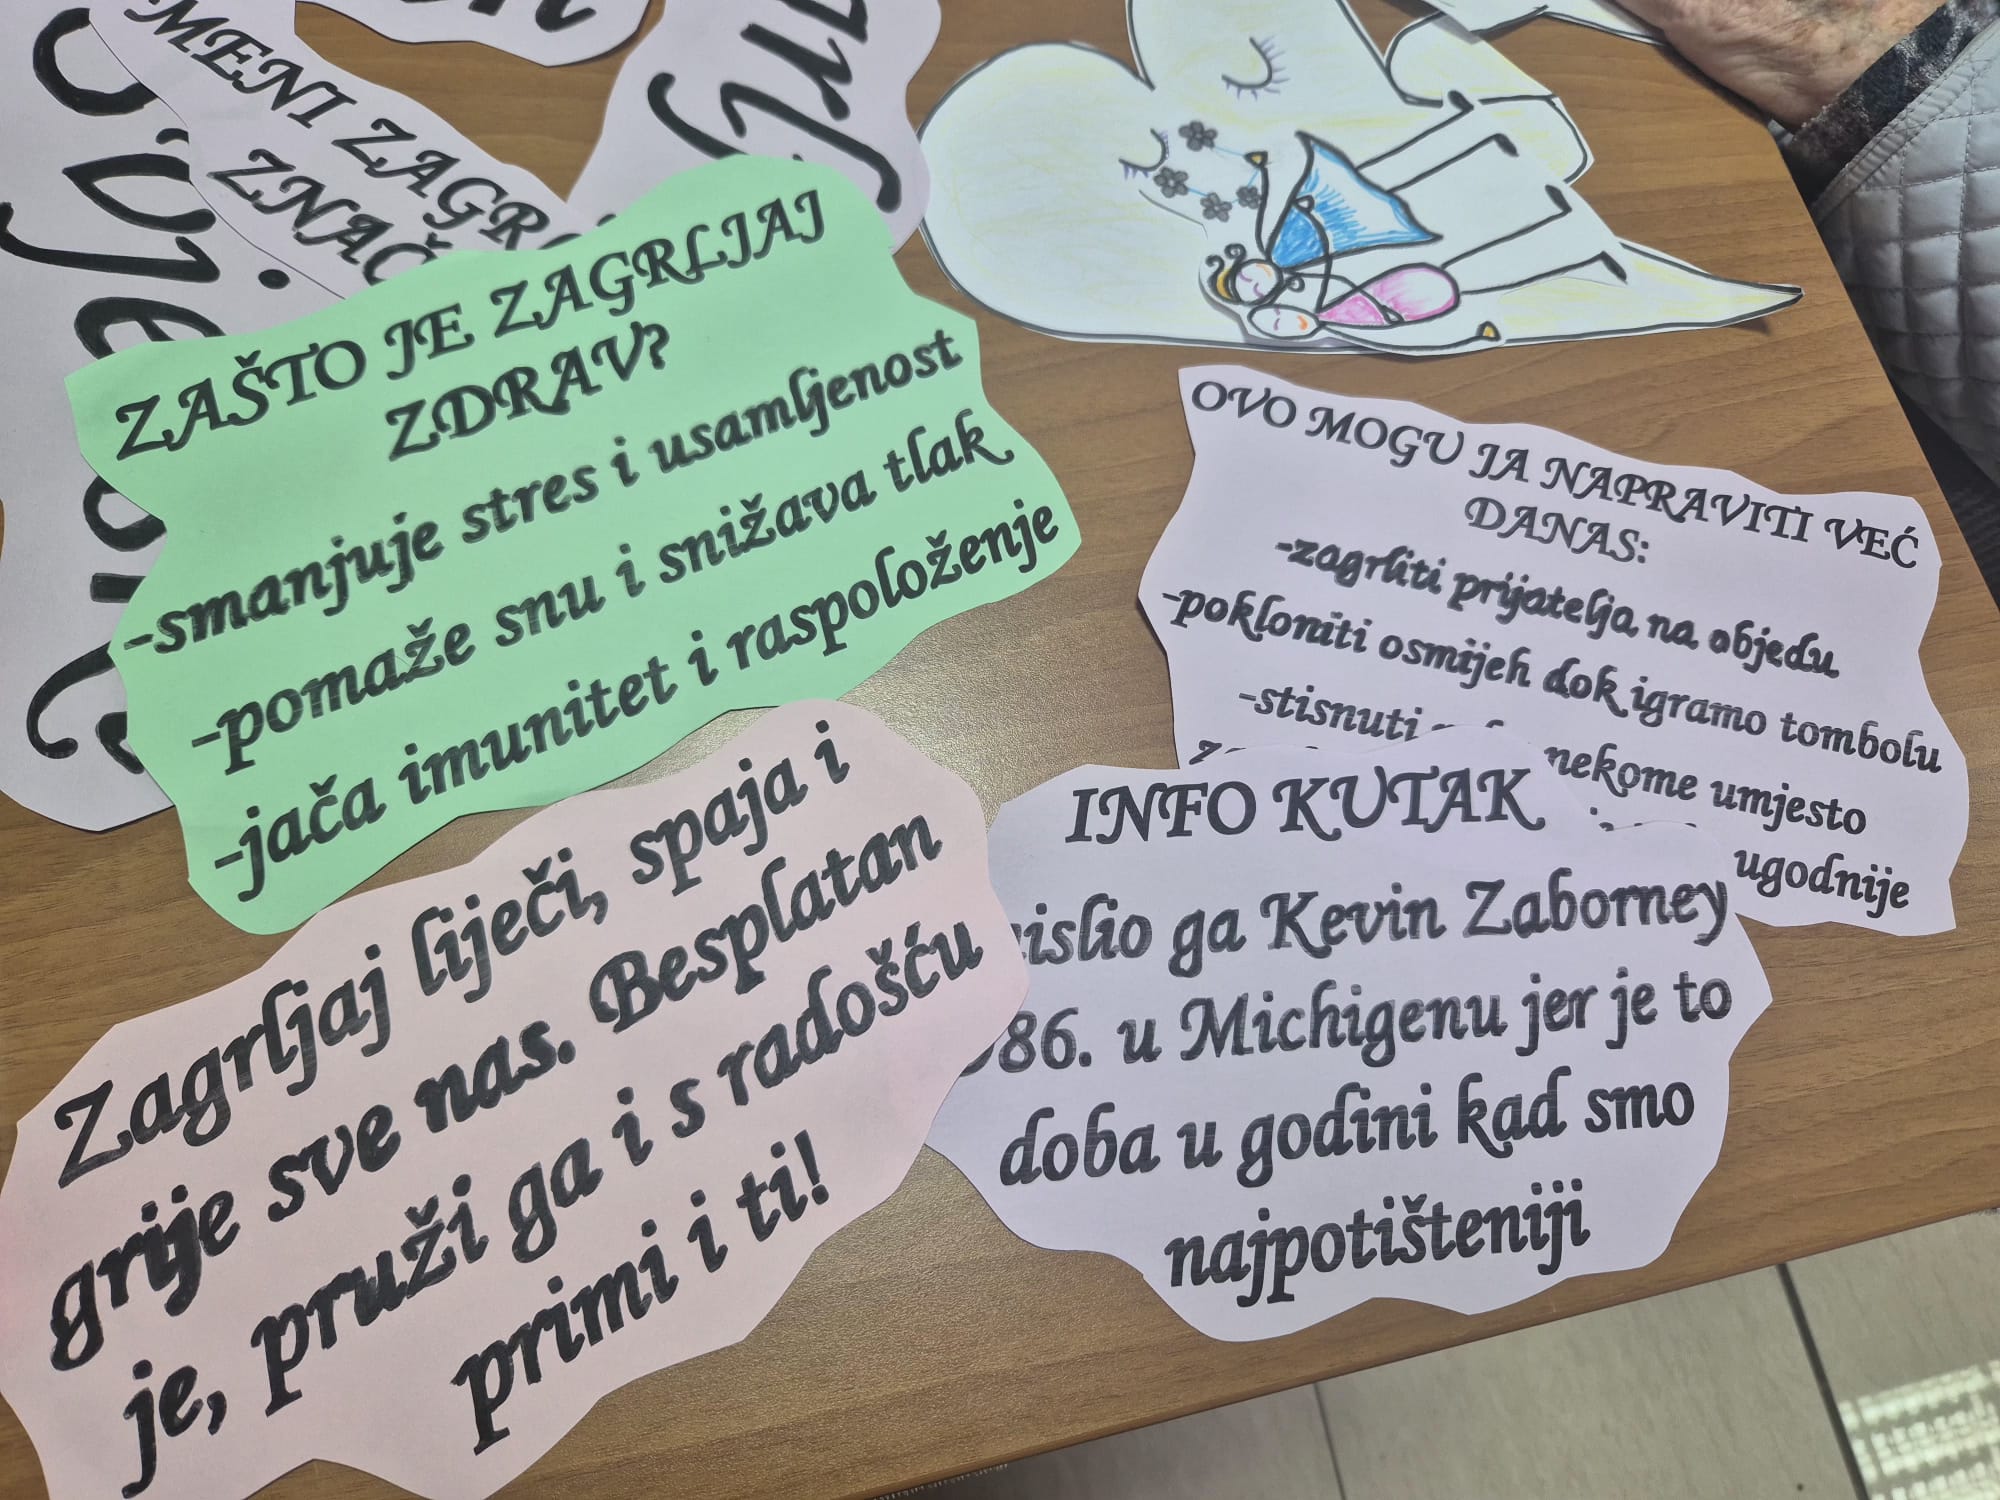 MENI ZAGR
ZNAČ
Svjet
ZAŠTO JE ZAGRLJAJ
ZDRAV?
-smanjuje stres i usamljenost
-pomaže snu i snižava tlak
-jača imunitet i raspoloženje
OVO MOGU JA NAPRAVITI VEĆ
DANAS:
-zagrliti prijatelja na objedu
-pokloniti osmijeh dok igramo tombolu
-stisnuti nekome umjesto
ugodnije
Zagrljaj liječi, spaja i
grije sve nas. Besplatan
je, pruži ga i s radošću
primi i ti!
INFO KUTAK
islio ga Kevin Zaborney
86. u Michigenu jer je to
doba u godini kad smo
najpotišteniji